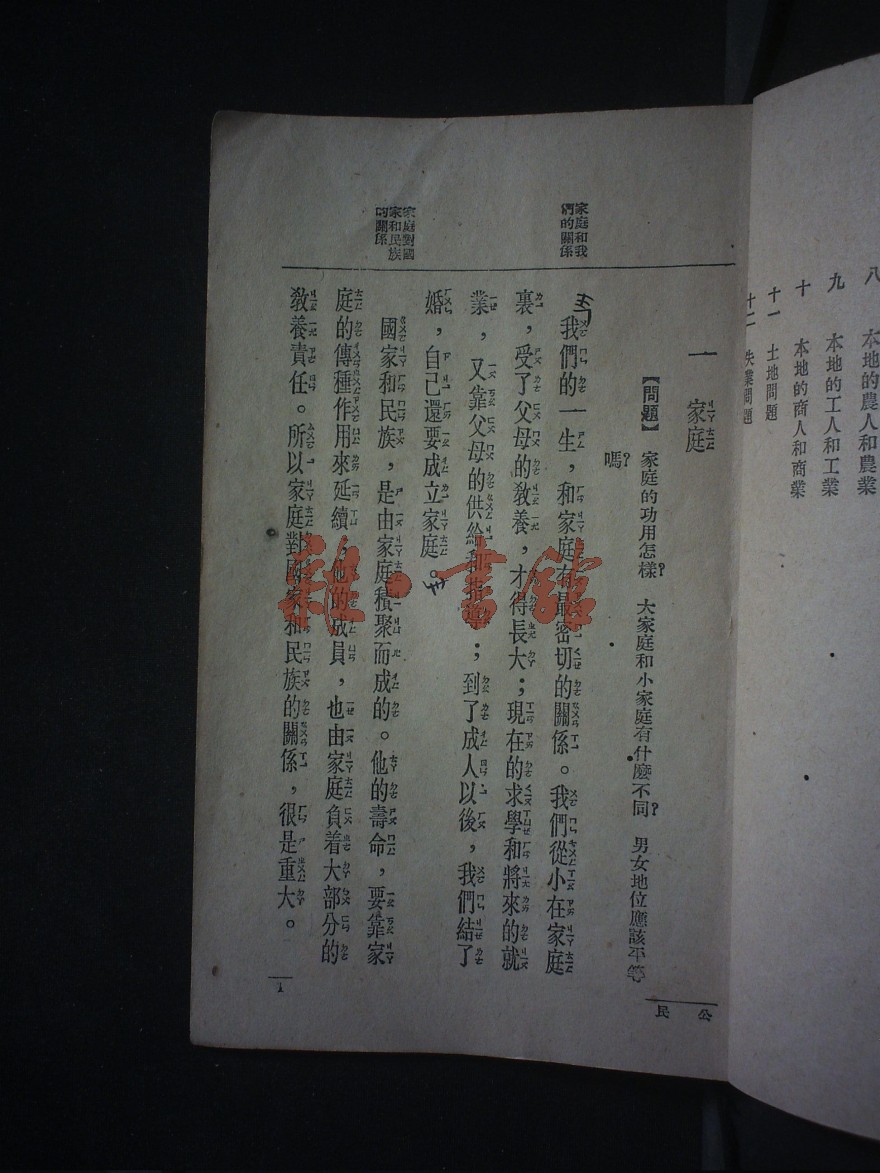 八　本地的農人和農業
九　本地的工人和工業
十　本地的商人和商業
十一　土地問題
十二　失業問題
公民
一　家庭
【問題】　家庭的功用怎樣？　大家庭和小家庭有什麼不同？　男女地位應該平等
嗎？
家庭和我
們的關係
我們的一生，和家庭有最密切的關係。我們從小在家庭
裏，受了父母的教養，才得長大；現在的求學和將來的就
業，又靠父母的供給和指導；到了成人以後，我們結了
婚，自己還要成立家庭。
家庭對國
家和民族
的關係
國家和民族，是由家庭積聚而成的。他的壽命，要靠家
庭的傳種作用來延續，他的成員，也由家庭負着大部分的
教養責任。所以家庭對國家和民族的關係，很是重大。
1
雜·書館